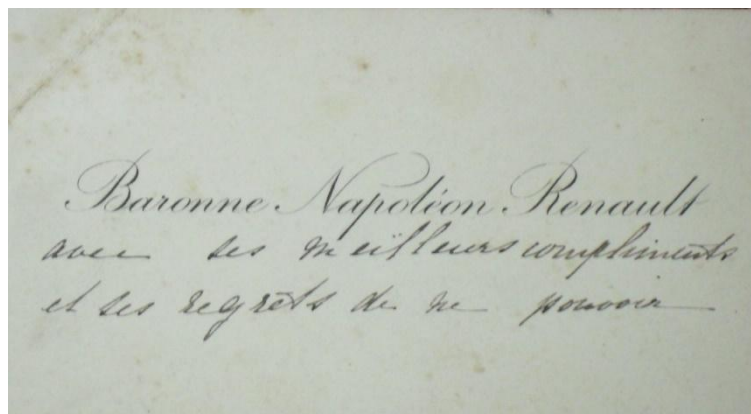 Baronne Napoléon Renault
avec ses meilleurs compliments
et ses regrets de ne pouvoir